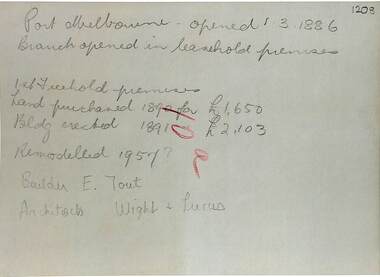 1208
Port Melbourne - opened 1.3.1886
Branch opened in leasehold premises
1st Freehold premises
Land purchased 1890 for £1,650
Bldg erected 1891 £2,103
Remodelled 1957?
Builder E. Tout
Architects Wight & Lucas